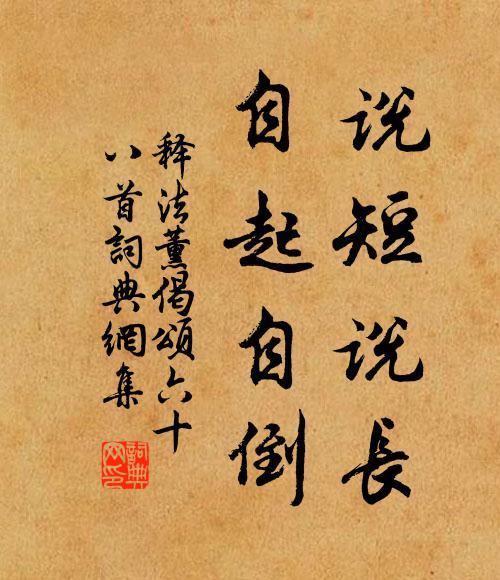 说短说长
自起自倒
释法薰偈頌六十
八首詞典網集
詞典
网印